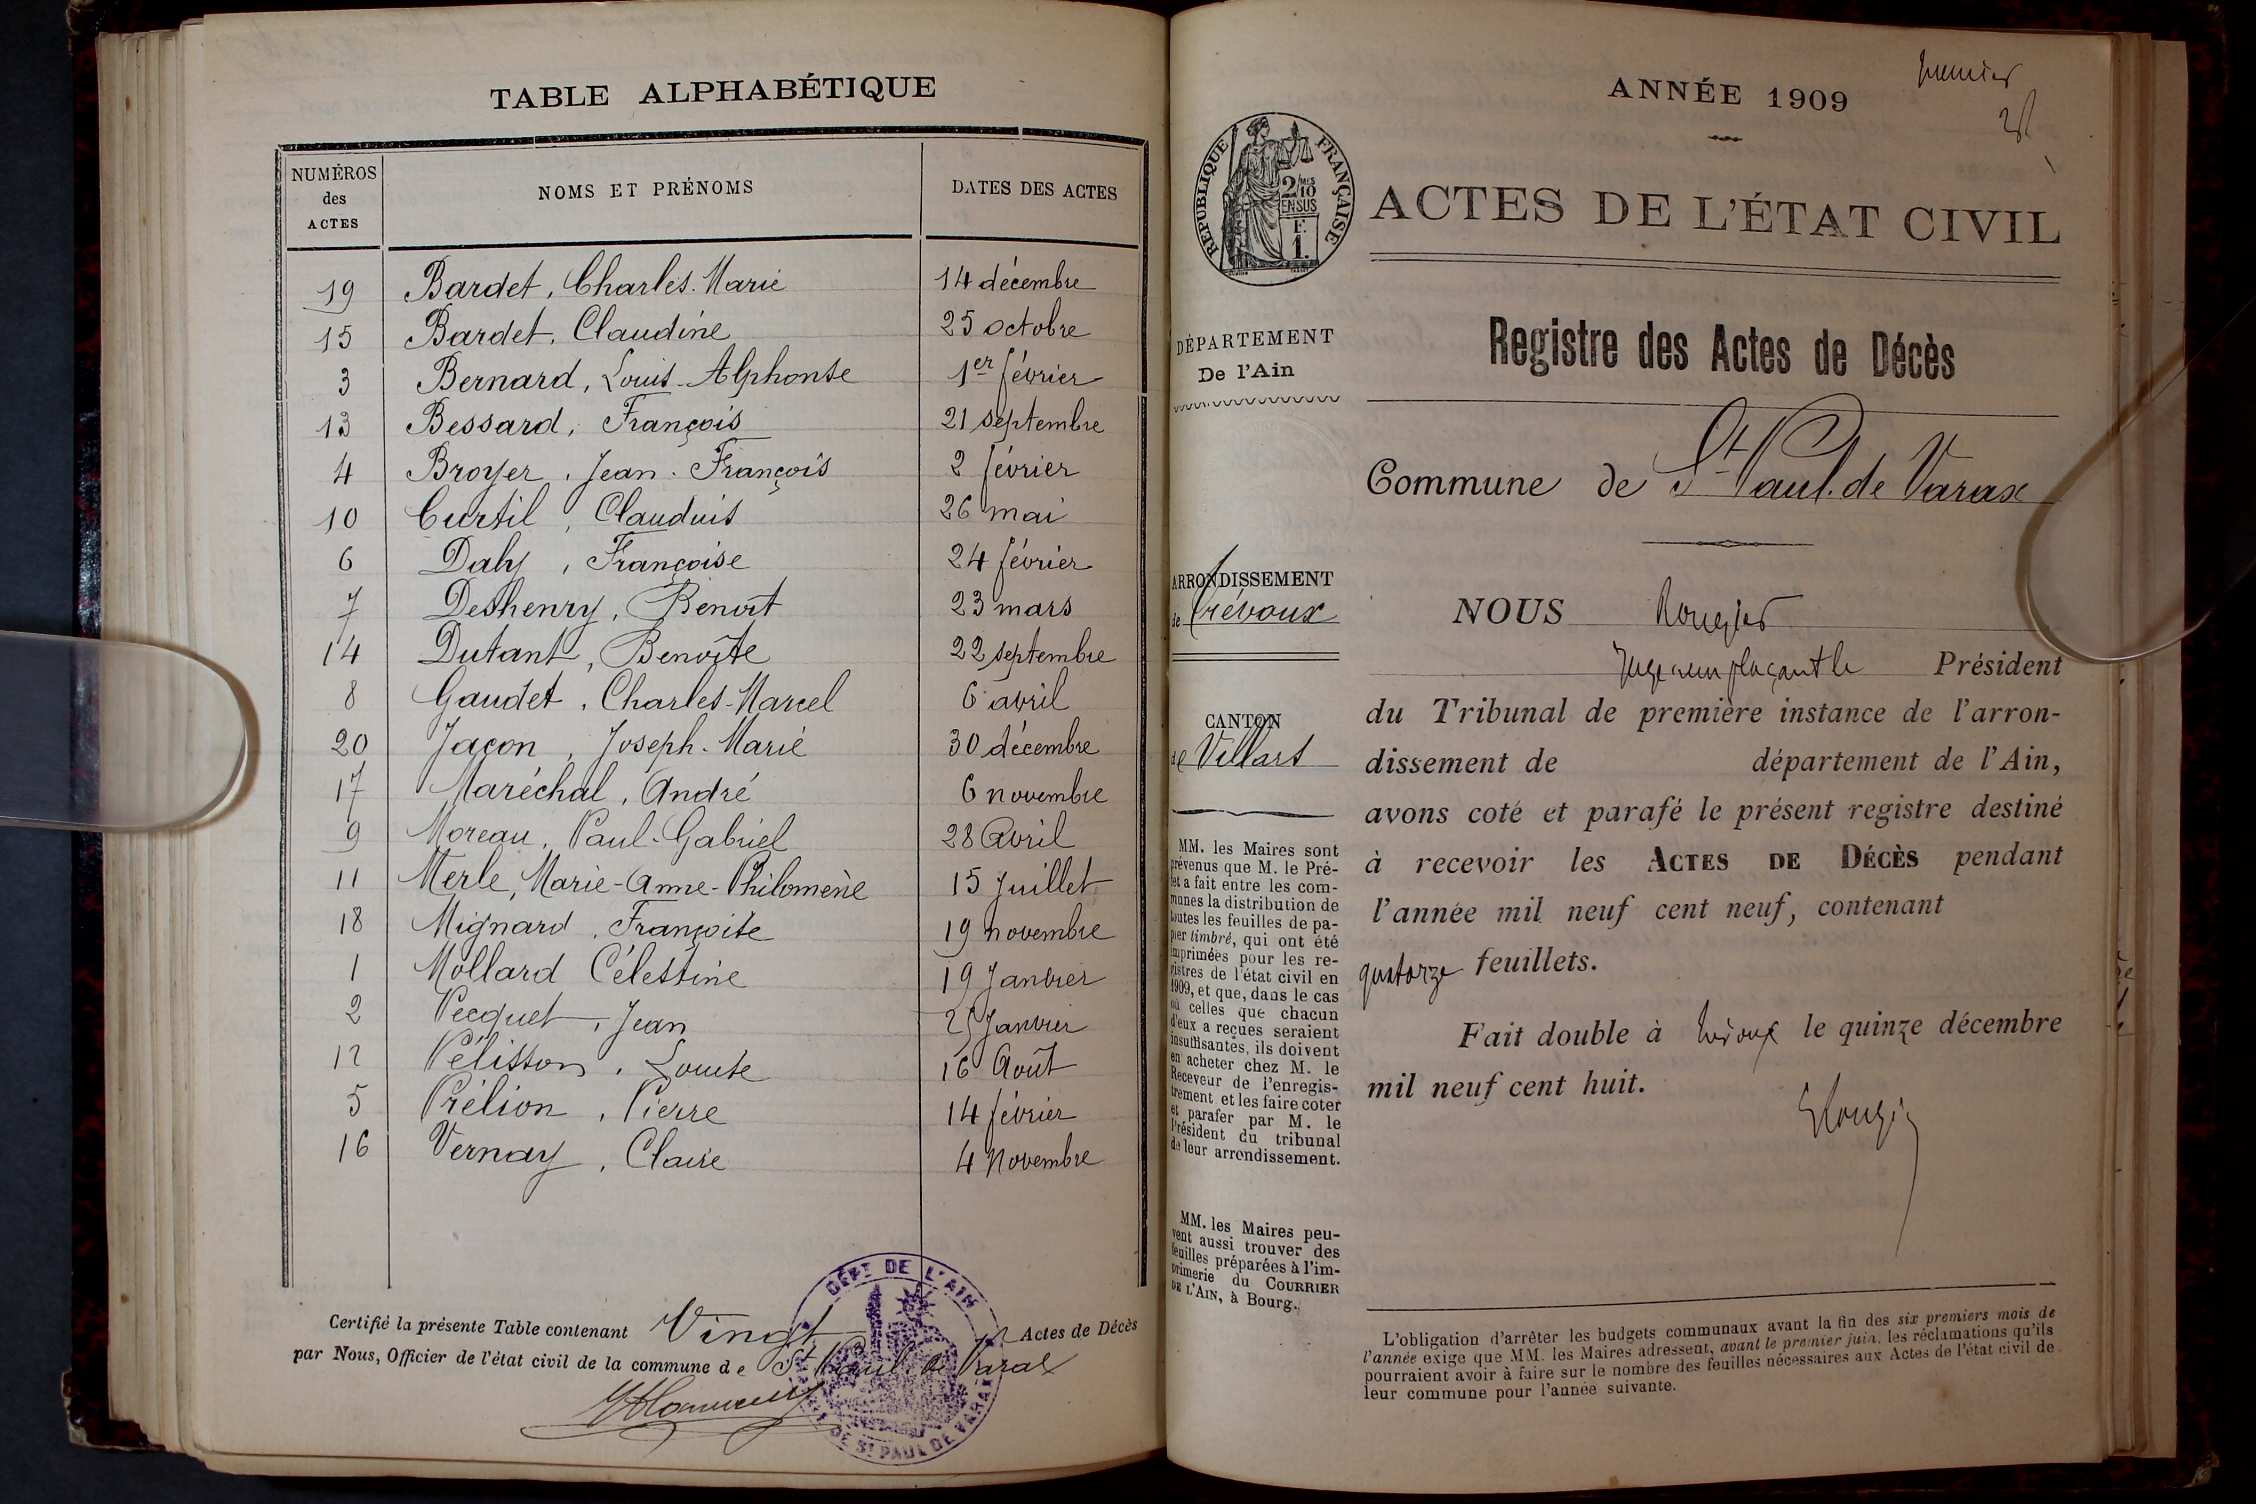 TABLE ALPHABÉTIQUE
NUMÉROS des ACTES NOMS ET PRÉNOMS DATES DES ACTES
19 Bardet, Charles-Marie 14 décembre
15 Bardet, Claudine 25 octobre
3 Bernard, Louis-Alphonse 1er février
13 Bessard, François 21 septembre
4 Broyer, Jean-François 2 février
10 Curtil, Claudius 26 mai
6 Daly, Françoise 24 février
7 Deshenry, Benoît 23 mars
14 Dutant, Benoîte 22 septembre
8 Gaudet, Charles-Marcel 6 avril
20 Jaçon, Joseph-Marie 30 décembre
17 Maréchal, André 6 novembre
9 Moreau, Paul-Gabriel 28 Avril
11 Merle, Marie-Anne-Philomène 15 Juillet
18 Mignard, Françoise 19 novembre
1 Mollard Célestine 19 Janvier
2 Pecquet, Jean 25 Janvier
12 Pélisson, Louise 16 Août
5 Prélion, Pierre 14 février
16 Vernay, Claire 4 Novembre
Certifié la présente Table contenant Vingt Actes de Décès
par Nous, Officier de l'état civil de la commune de St Paul de Varax
DÉPT DE L'AIN
DE ST PAUL DE VARAX
premier
ANNÉE 1909
RÉPUBLIQUE FRANÇAISE
2/10 MES
EN SUS
F.
1.
ACTES DE L'ÉTAT CIVIL
DÉPARTEMENT
De l'Ain
Registre des Actes de Décès
Commune de St Paul. de Varax
ARRONDISSEMENT
de Trévoux
CANTON
de Villars
MM. les Maires sont
prévenus que M. le Pré-
fet a fait entre les com-
munes la distribution de
toutes les feuilles de pa-
pier timbré, qui ont été
imprimées pour les re-
gistres de l'état civil en
1909, et que, dans le cas
où celles que chacun
d'eux a reçues seraient
insuffisantes, ils doivent
en acheter chez M. le
Receveur de l'enregis-
trement et les faire coter
et parafer par M. le
Président du tribunal
de leur arrondissement.
MM. les Maires peu-
vent aussi trouver des
feuilles préparées à l'im-
primerie du COURRIER
DE L'AIN, à Bourg.
NOUS Rougier
Juge remplaçant le Président
du Tribunal de première instance de l'arron-
dissement de département de l'Ain,
avons coté et parafé le présent registre destiné
à recevoir les ACTES DE DÉCÈS pendant
l'année mil neuf cent neuf, contenant
quatorze feuillets.
Fait double à Trévoux le quinze décembre
mil neuf cent huit.
Rougier
L'obligation d'arrêter les budgets communaux avant la fin des six premiers mois de
l'année exige que MM. les Maires adressent, avant le premier juin, les réclamations qu'ils
pourraient avoir à faire sur le nombre des feuilles nécessaires aux Actes de l'état civil de
leur commune pour l'année suivante.